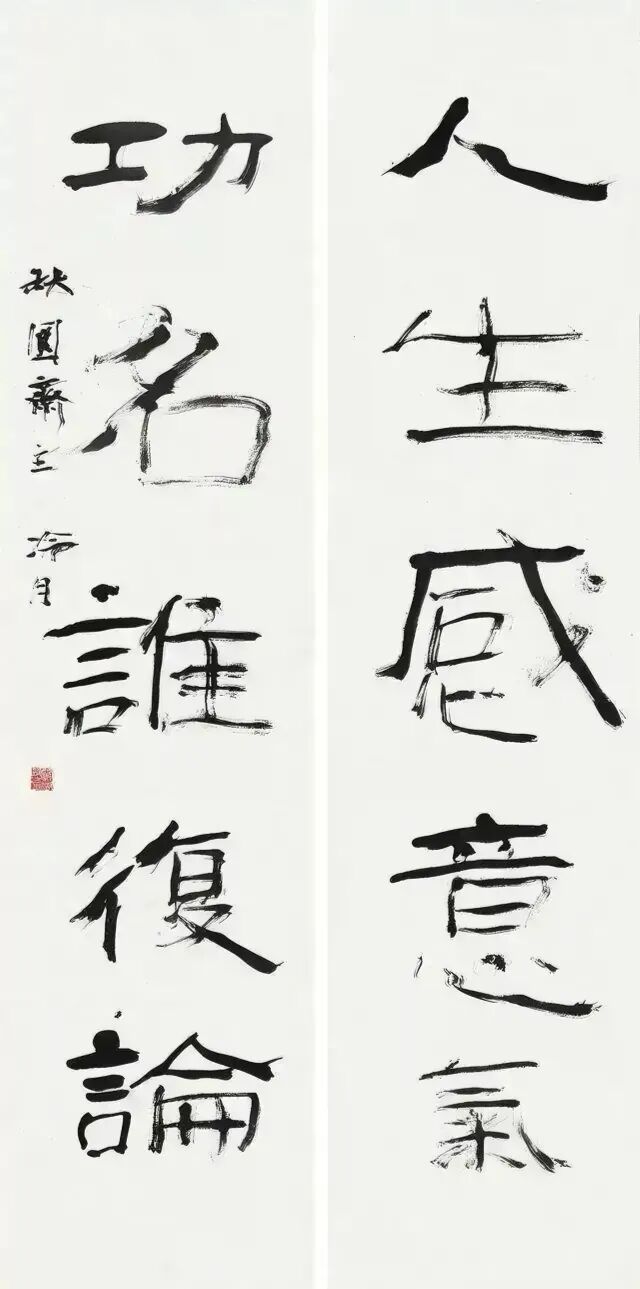 人生感意氣
功名誰復論
秋圓齋主